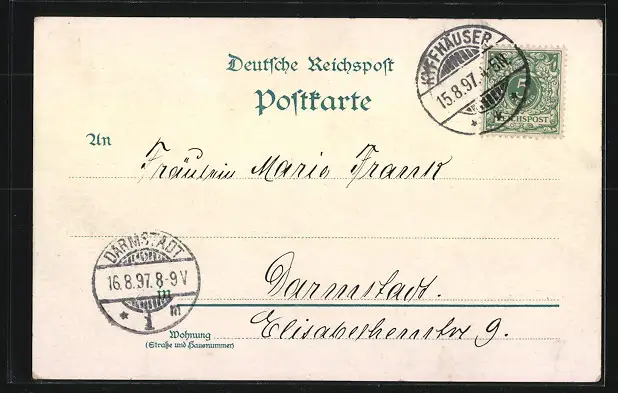 Deutsche Reichspost
Postkarte
KYFFHÄUSER
15.8.97.
5
REICHSPOST
An
Fräulein Marie Frank
DARMSTADT
16.8.97.8-9V
* 1 m
in
Darmstadt.
Wohnung
(Straße und Hausnummer)
Elisabethenstr 9.